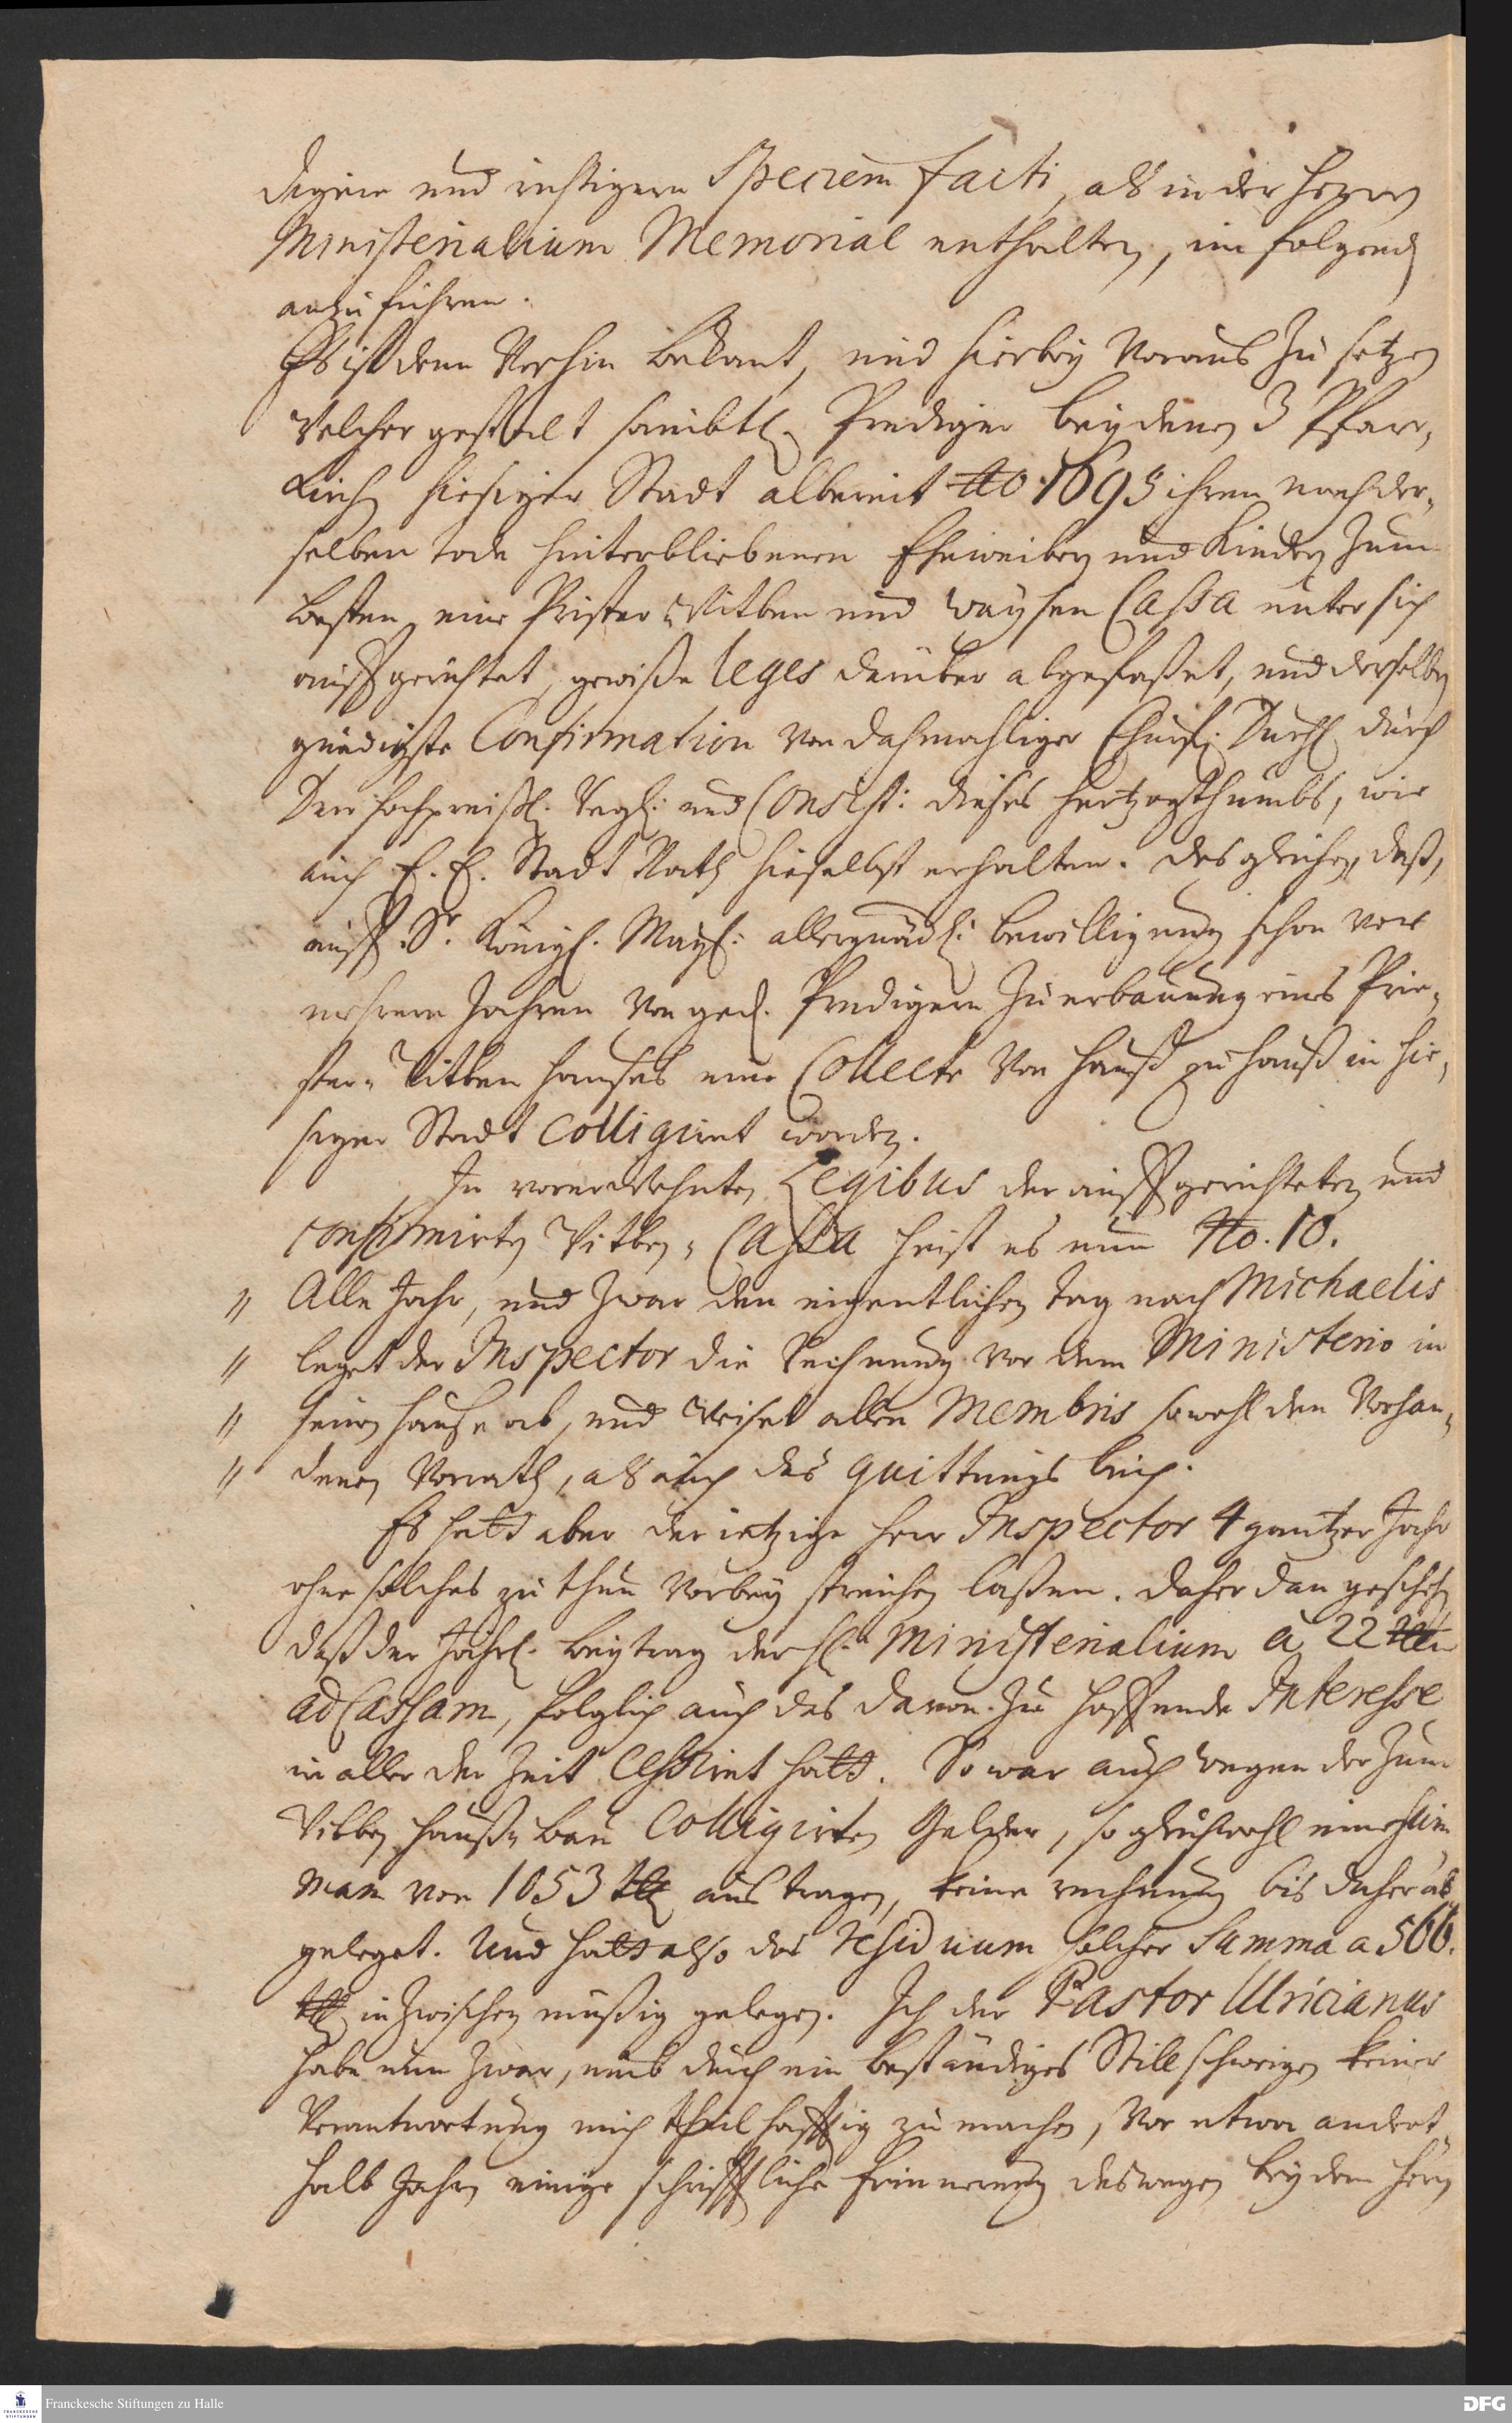 digere und richtigere Speciem facti, als in der Herren
Ministerialium Memorial enthalten, im folgend
anzuführen.
Es ist dem Vorhin bekant, und hierbey Voraus zu setzen
Welcher gestalt sämbtl. Prediger bey denen 3 Pfarr„
Kirch hiesiger Stadt albereit Ao. 1695 ihren nach der„
selben tode hinterbliebenen Eheweibern und Kindern zum
besten, eine Prister„ Witben und Waysen Cassa unter sich
auffgerichtet, gewiße leges darüber abgefaßet, und derselben
gnädigste Confirmation von dahmahliger Churfl. Durchl durch
Dero hochpreißl. Regl: und Consist: dieses Hertzogthumbs, wie
auch E. E. Stadt Rath hieselbst erhalten. Des gleichen, daß,
auff Sr. Königl. Mayt: allergnädl: bewilligung schon vor
mehrern Jahren Von ged. Predigern zu erbauung eines Prie„
ster„ Witben Hauses eine Collecte Von Hauß zu Hauß in hie„
siger Stadt Colligiret worden.
In vorerwehnten Legibus der auffgerichteten und
confirmirten Witben„ Cassa heist es nun No. 10.
„ Alle Jahr, und zwar den eigentlichen tag nach Michaelis
„ leget der Inspector die Rechnung vor dem Ministerio in
„ seinen Hause ab, und Weiset allen Membris sowohl den Vorhan„
„ denen Vorrath, als auch das quittungs buch.
Es hatt aber der ietzige Herr Inspector 4 gantzer Jahr
ohne solches zu thun Vorbey streichen laßen. Daher dan geschehen
daß der Jährl. beytrag der H. Ministerialium à 22 rthl
ad Cassam, folglich auch das davon zu hoffende Interesse
in aller der Zeit cessiret hatt. So war auch wegen der zum
Witben Hauß„ bau Colligirten Gelder, so gleichwohl eine Sum
mam von 1053 rthl austragen, keine rechnung bis daher ab„
geleget. Und hatt also das residuum solcher Summa a 566.
rthl inzwischen müßig gelegen. Ich der Pastor Ulricianus
habe nun zwar, umb durch ein beständiges Stillschweigen keiner
Verantwortung mich theilhafftig zu machen, Vor etwa andert„
halb Jahren einige schrifftliche Erinnerung deswegen bey dem Herrn
Franckesche Stiftungen zu Halle
DFG